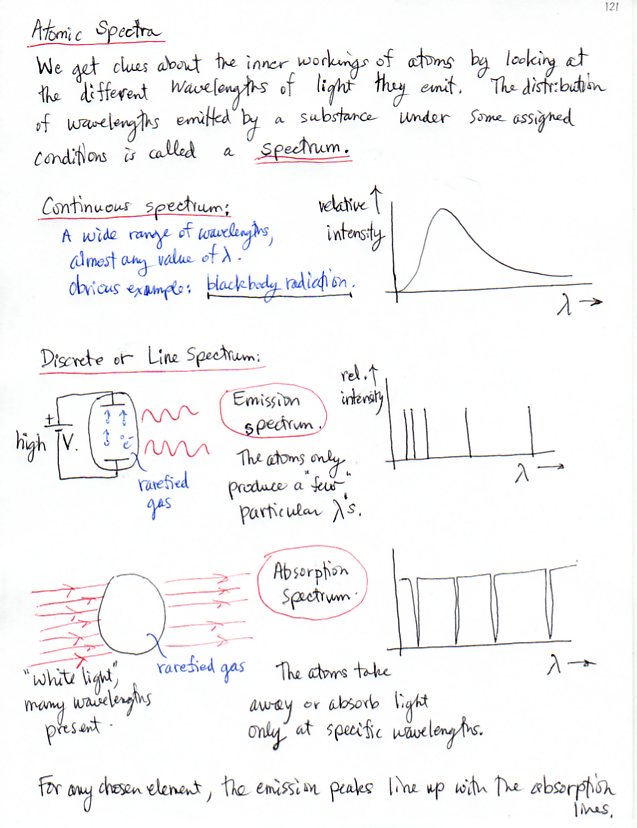 121
Atomic Spectra
We get clues about the inner workings of atoms by looking at
the different wavelengths of light they emit. The distribution
of wavelengths emitted by a substance under some assigned
conditions is called a spectrum.
Continuous spectrum:
A wide range of wavelengths,
almost any value of λ.
obvious example: blackbody radiation.
relative ↑
intensity
λ →
Discrete or Line Spectrum:
+
high V.
e⁻
rarefied
gas
Emission
spectrum.
The atoms only
produce a "few"
particular λ's.
rel. ↑
intensity
λ →
"White light",
many wavelengths
present.
rarefied gas
Absorption
Spectrum.
The atoms take
away or absorb light
only at specific wavelengths.
λ →
For any chosen element, the emission peaks line up with the absorption
lines.